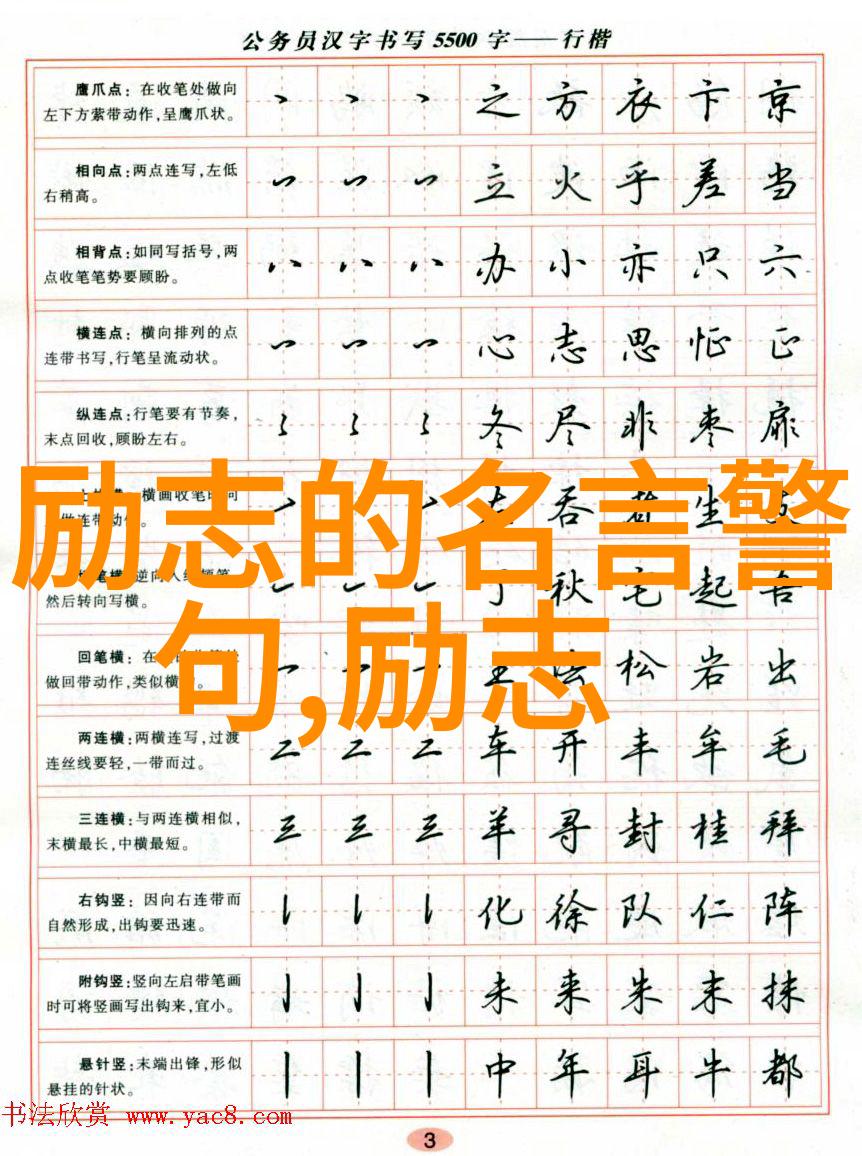 公务员汉字书写5500字——行楷
鹰爪点：在收笔处做向
左下方萦带动作,呈鹰爪状。
之 方 衣 卞 京
相向点：两点连写,左低
右稍高。
立 火 乎 差 当
相背点：如同写括号,两
点收笔笔势要顾盼。
办 小 亦 只 六
横连点：横向排列的点
连带书写,行笔呈流动状。
心 志 思 恒 正
纵连点：行笔要有节奏,
末点回收,顾盼左右。
冬 尽 非 枣 扉
横画收笔
吞 生
励志的名言警
然后转向写横。
秋 宅 起 舍
句,励志
回笔横：在
做回带动作,类似横
王 松 岩 出
两连横：两横连写,过渡
连丝线要轻,一带而过。
车 开 丰 牟 毛
三连横：与两连横相似,
末横最长,中横最短。
羊 寻 封 桂 拜
右钩竖：因向右连带而
自然形成,出钩要迅速。
化 徐 队 仁 阵
附钩竖：竖向左启带笔画
时可将竖画写出钩来,宜小。
未 来 朱 末 抹
悬针竖：末端出锋,形似
悬挂的针状。
中 年 耳 牛 都
书法欣赏 www.yac8.com
3